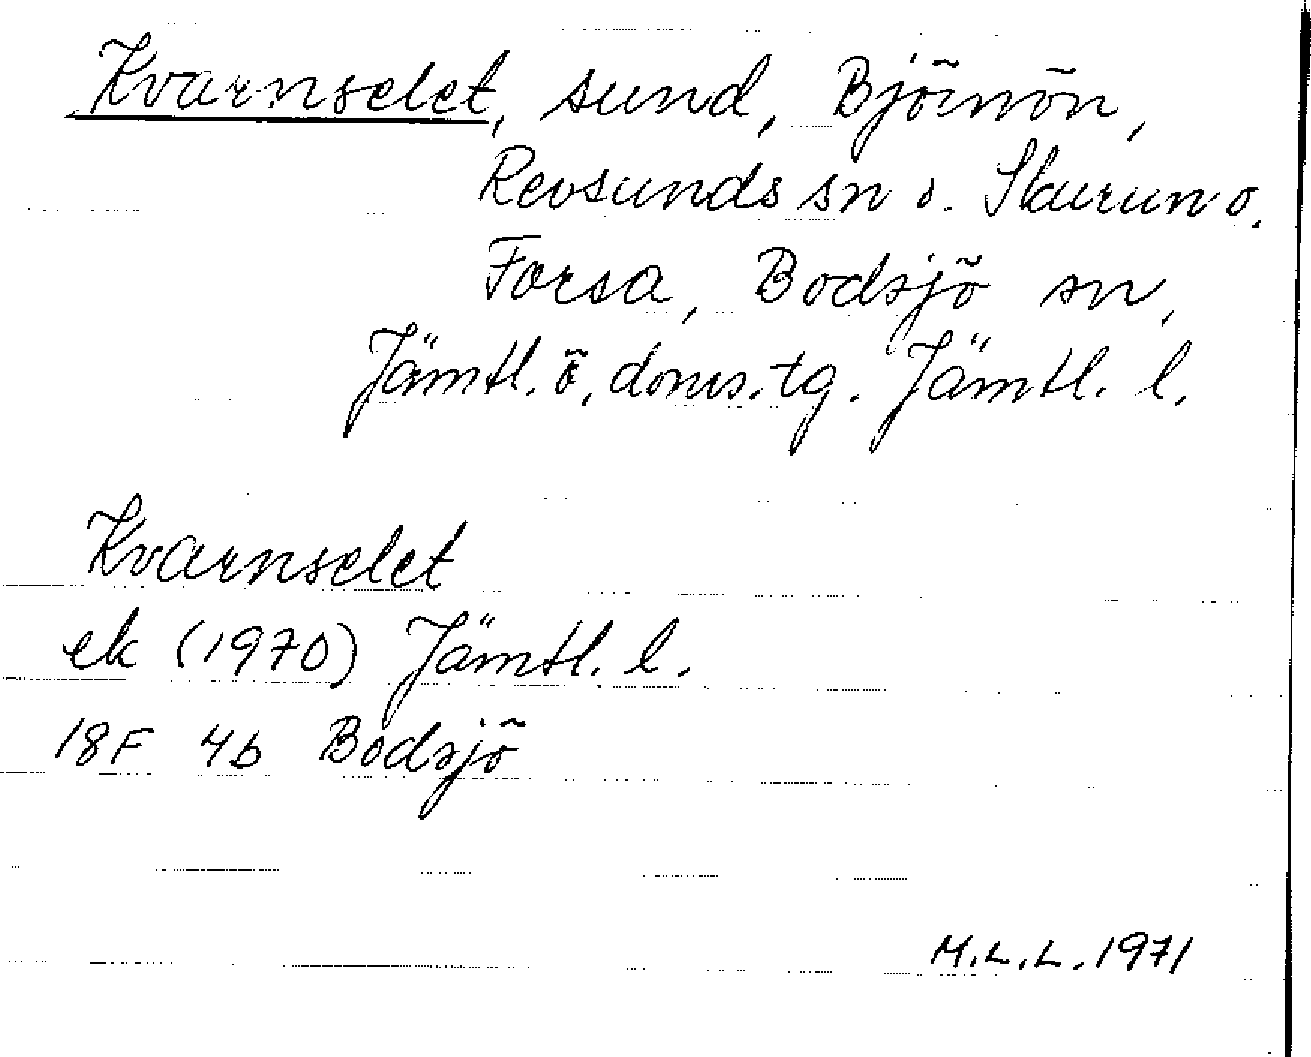 Kvarnselet, sund, Björnön,
Revsunds sn o. Stavrun o.
Forsa, Bodsjö sn,
Jämtl. ö, doms.tg. Jämtl. l.
Kvarnselet
ek (1970) Jämtl. l.
18F 4b Bodsjö
M.L.L. 1971